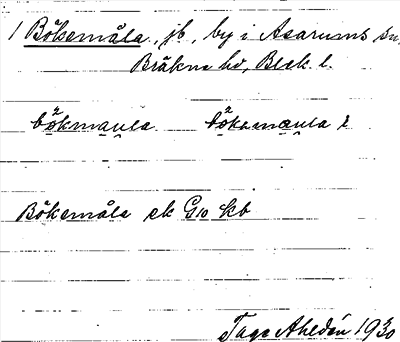 1 Bökemåla, jb, by i Asarums sn,
Bräkne hd, Blek. l.
bökmaula bökemaula
Bökemåla ek G10 kb
Tage Ahldén 1930